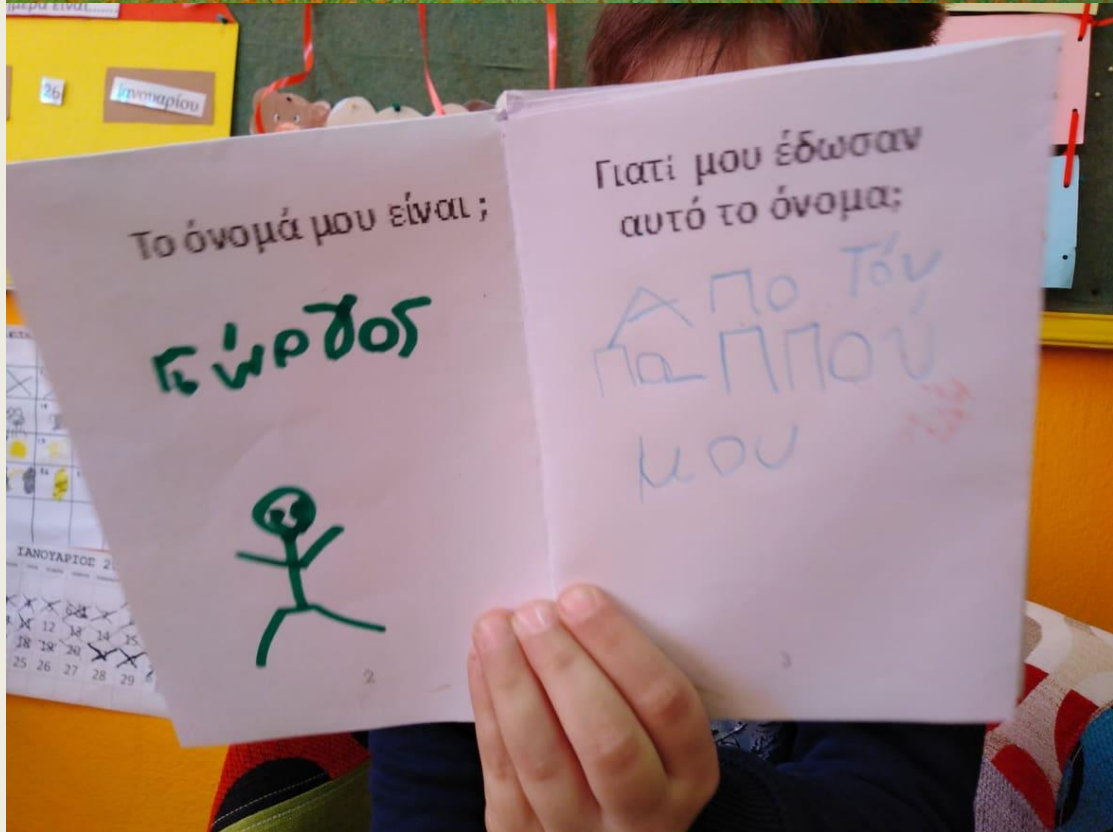 26
Ιανουαρίου
Το όνομά μου είναι;
Γιώργος
2
Γιατί μου έδωσαν
αυτό το όνομα;
Απο Τόν
παΠΠού
μου
3
ΙΑΝΟΥΑΡΙΟΣ 2
12 13 14 15
18 19 20
25 26 27 28 29